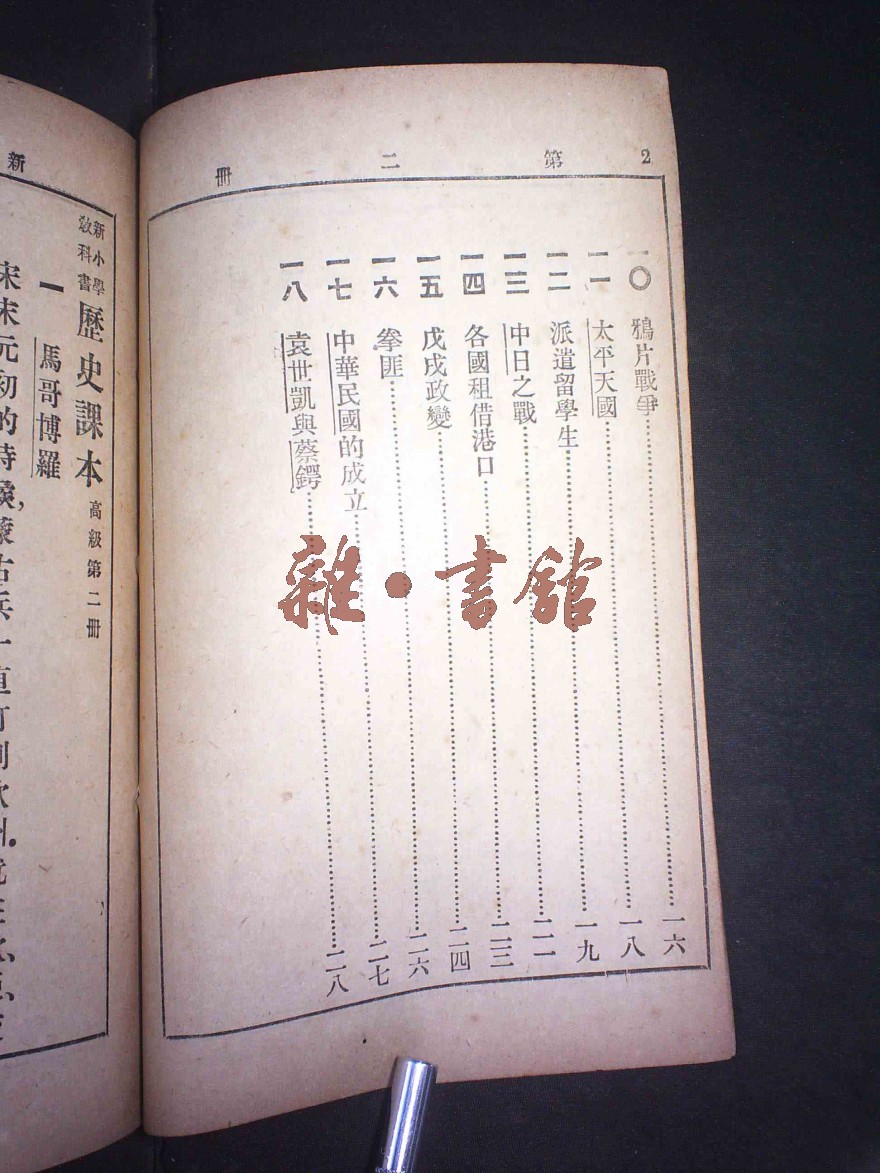 第二冊 2
一〇 鴉片戰爭……一六
一一 太平天國……一八
一二 派遣留學生……一九
一三 中日之戰……二一
一四 各國租借港口……二三
一五 戊戌政變……二四
一六 拳匪……二六
一七 中華民國的成立……二七
一八 袁世凱與蔡鍔……二八
新
新小學教科書 歷史課本 高級第二冊
一 馬哥博羅
宋末元初的時候,蒙古兵一直打到歐洲.
雜·書館